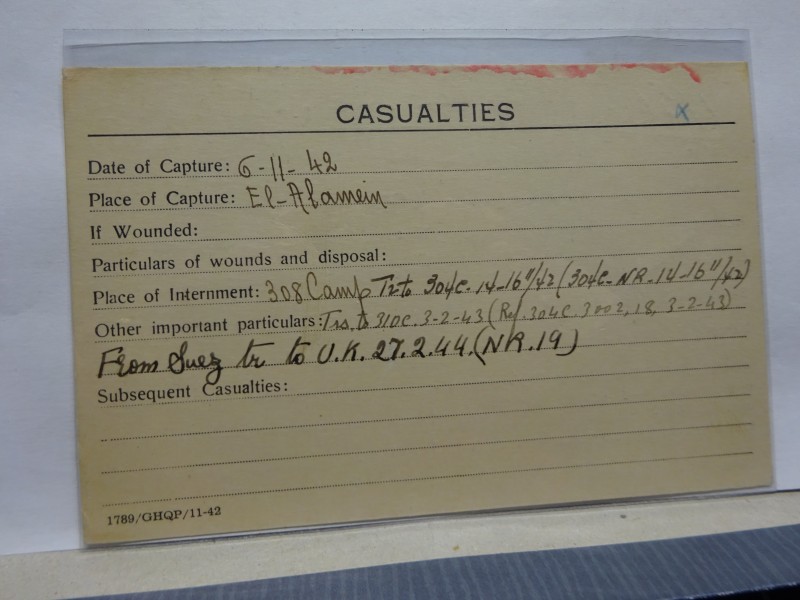 CASUALTIES x
Date of Capture: 6-11-42
Place of Capture: El-Alamein
If Wounded:
Particulars of wounds and disposal:
Place of Internment: 308 Camp Tr to 304C. 14-16 11/42 (304C-NR-14-16 11/42)
Other important particulars: Trs. to 310C. 3-2-43 (Ref. 304C. 3002, 18, 3-2-43)
From Suez tr to U.K. 27.2.44. (NR.19)
Subsequent Casualties:
1789/GHQP/11-42